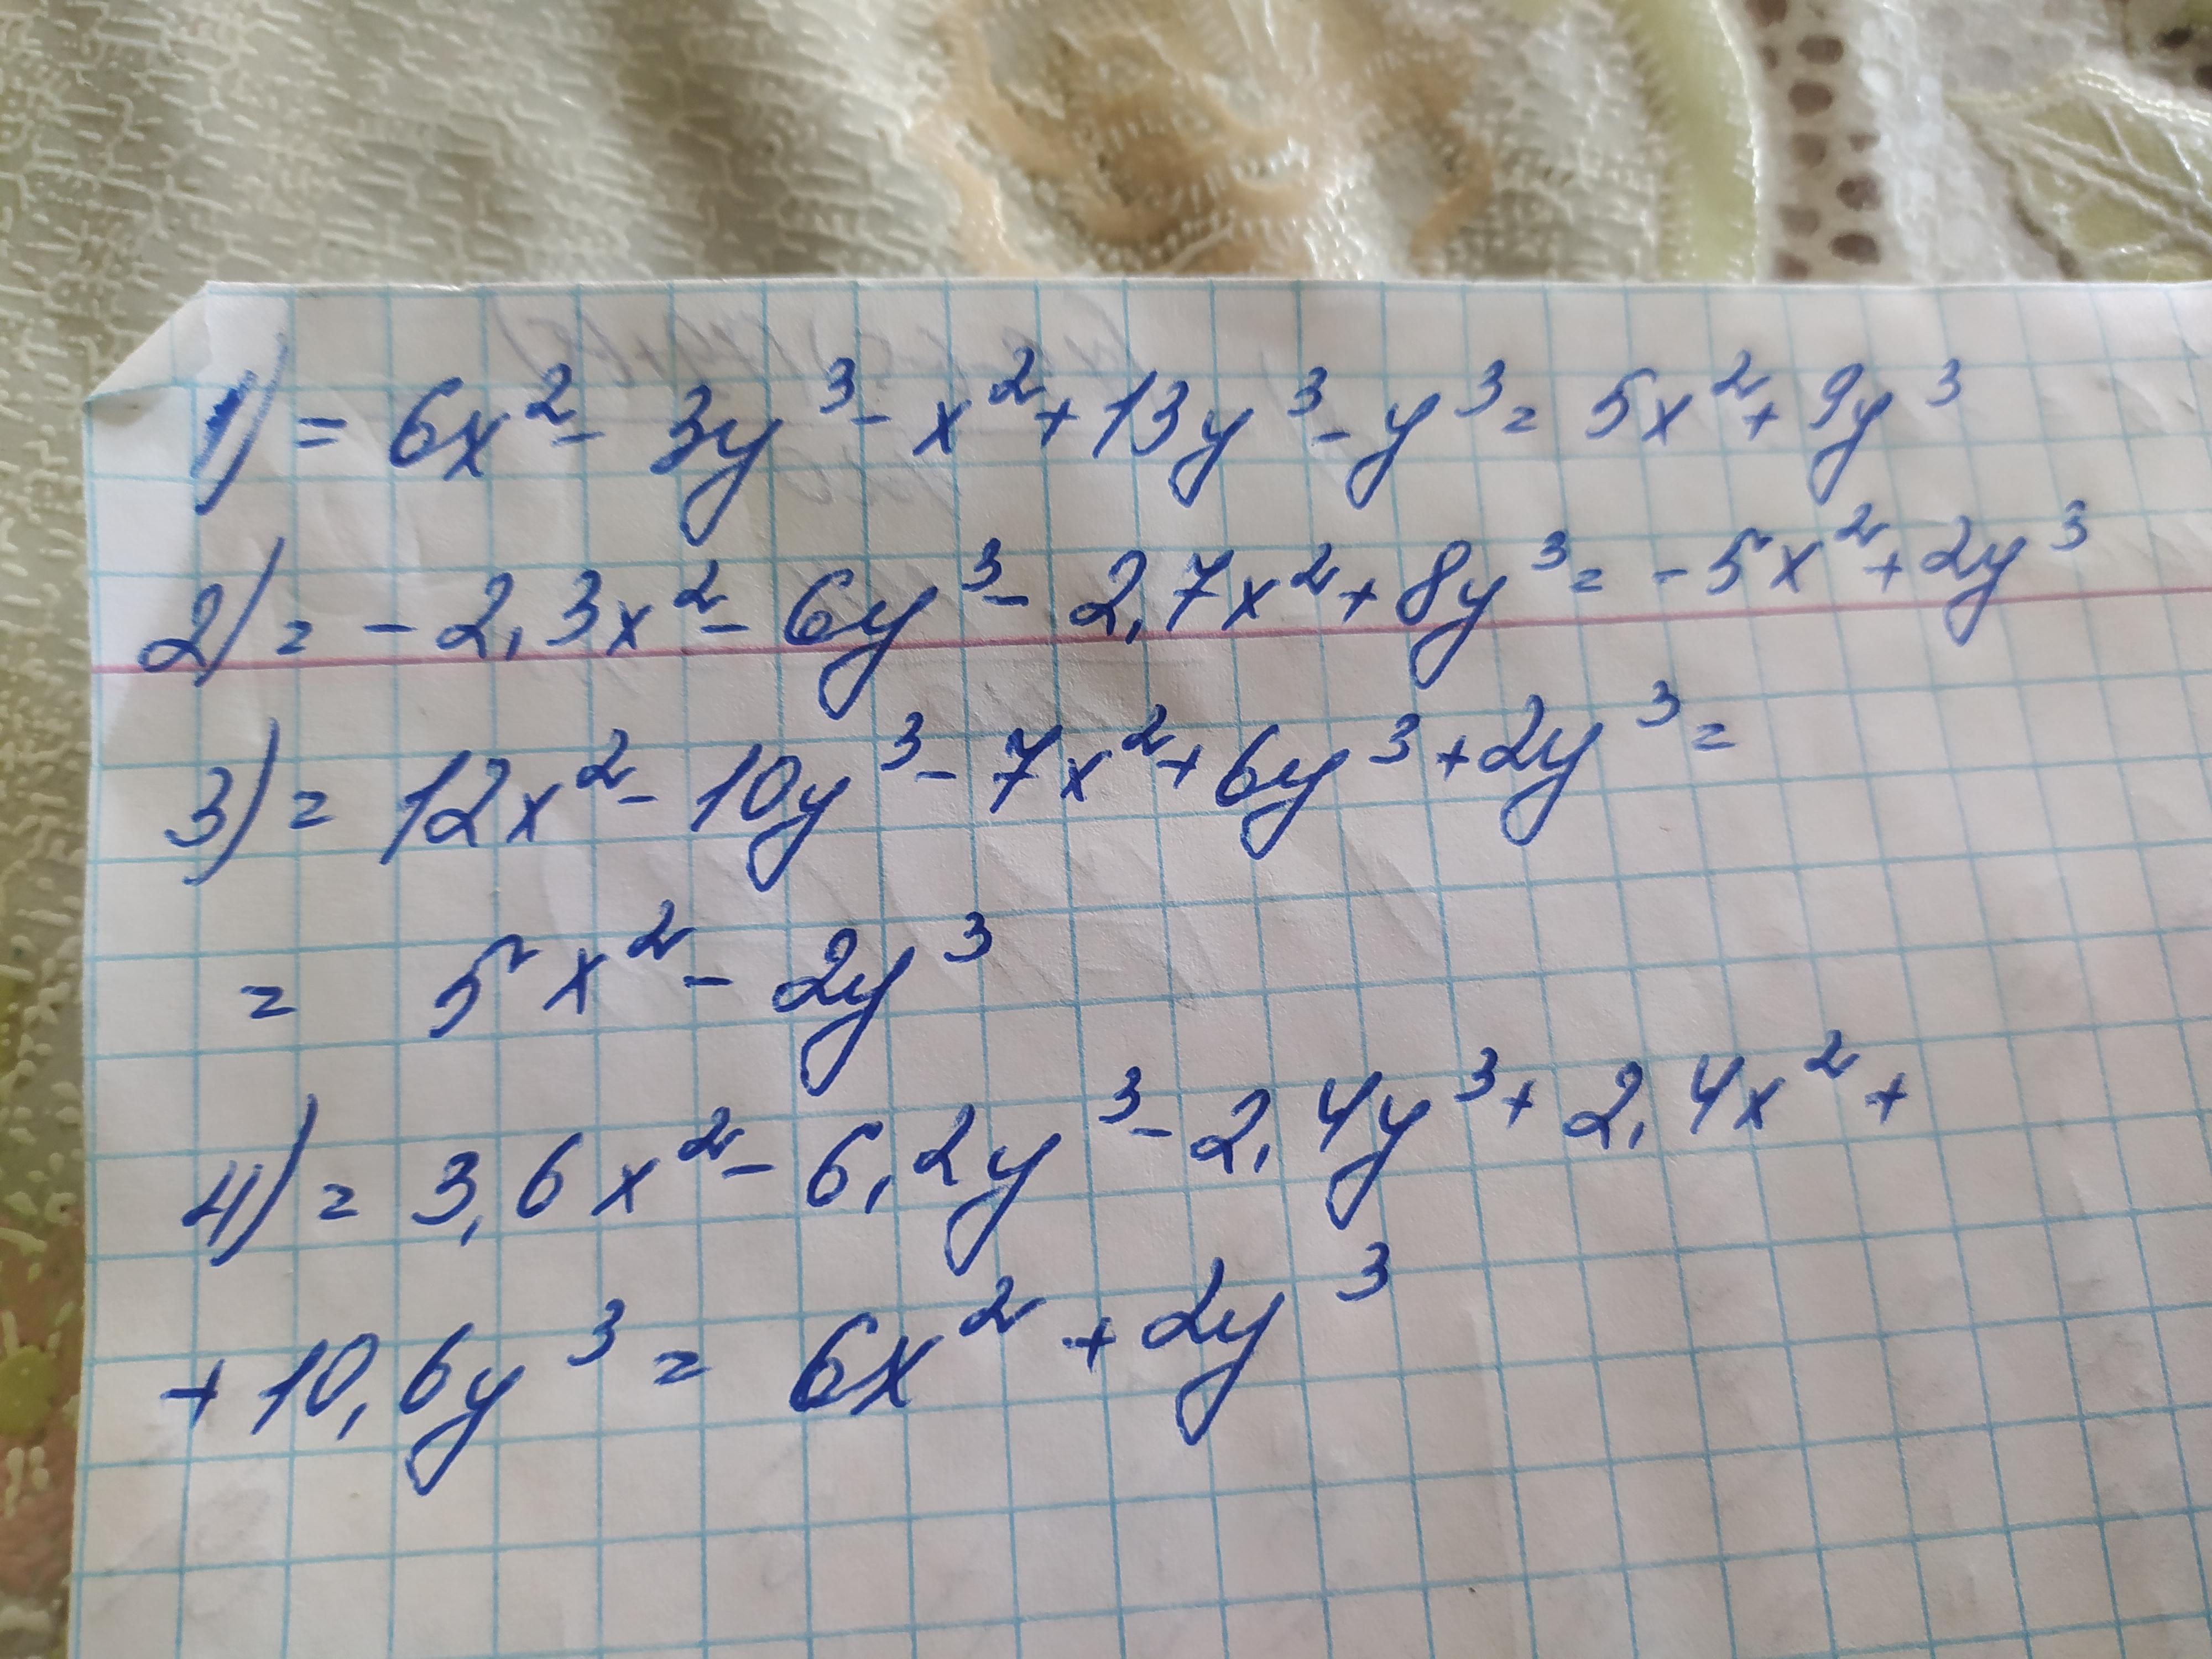 1) = 6x² - 3y³ - x² + 13y³ - y³ = 5x² + 9y³
2) = - 2,3x² - 6y³ - 2,7x² + 8y³ = - 5x² + 2y³
3) = 12x² - 10y³ - 7x² + 6y³ + 2y³ =
= 5x² - 2y³
4) = 3,6x² - 6,2y³ - 2,4y³ + 2,4x² +
+ 10,6y³ = 6x² + 2y³